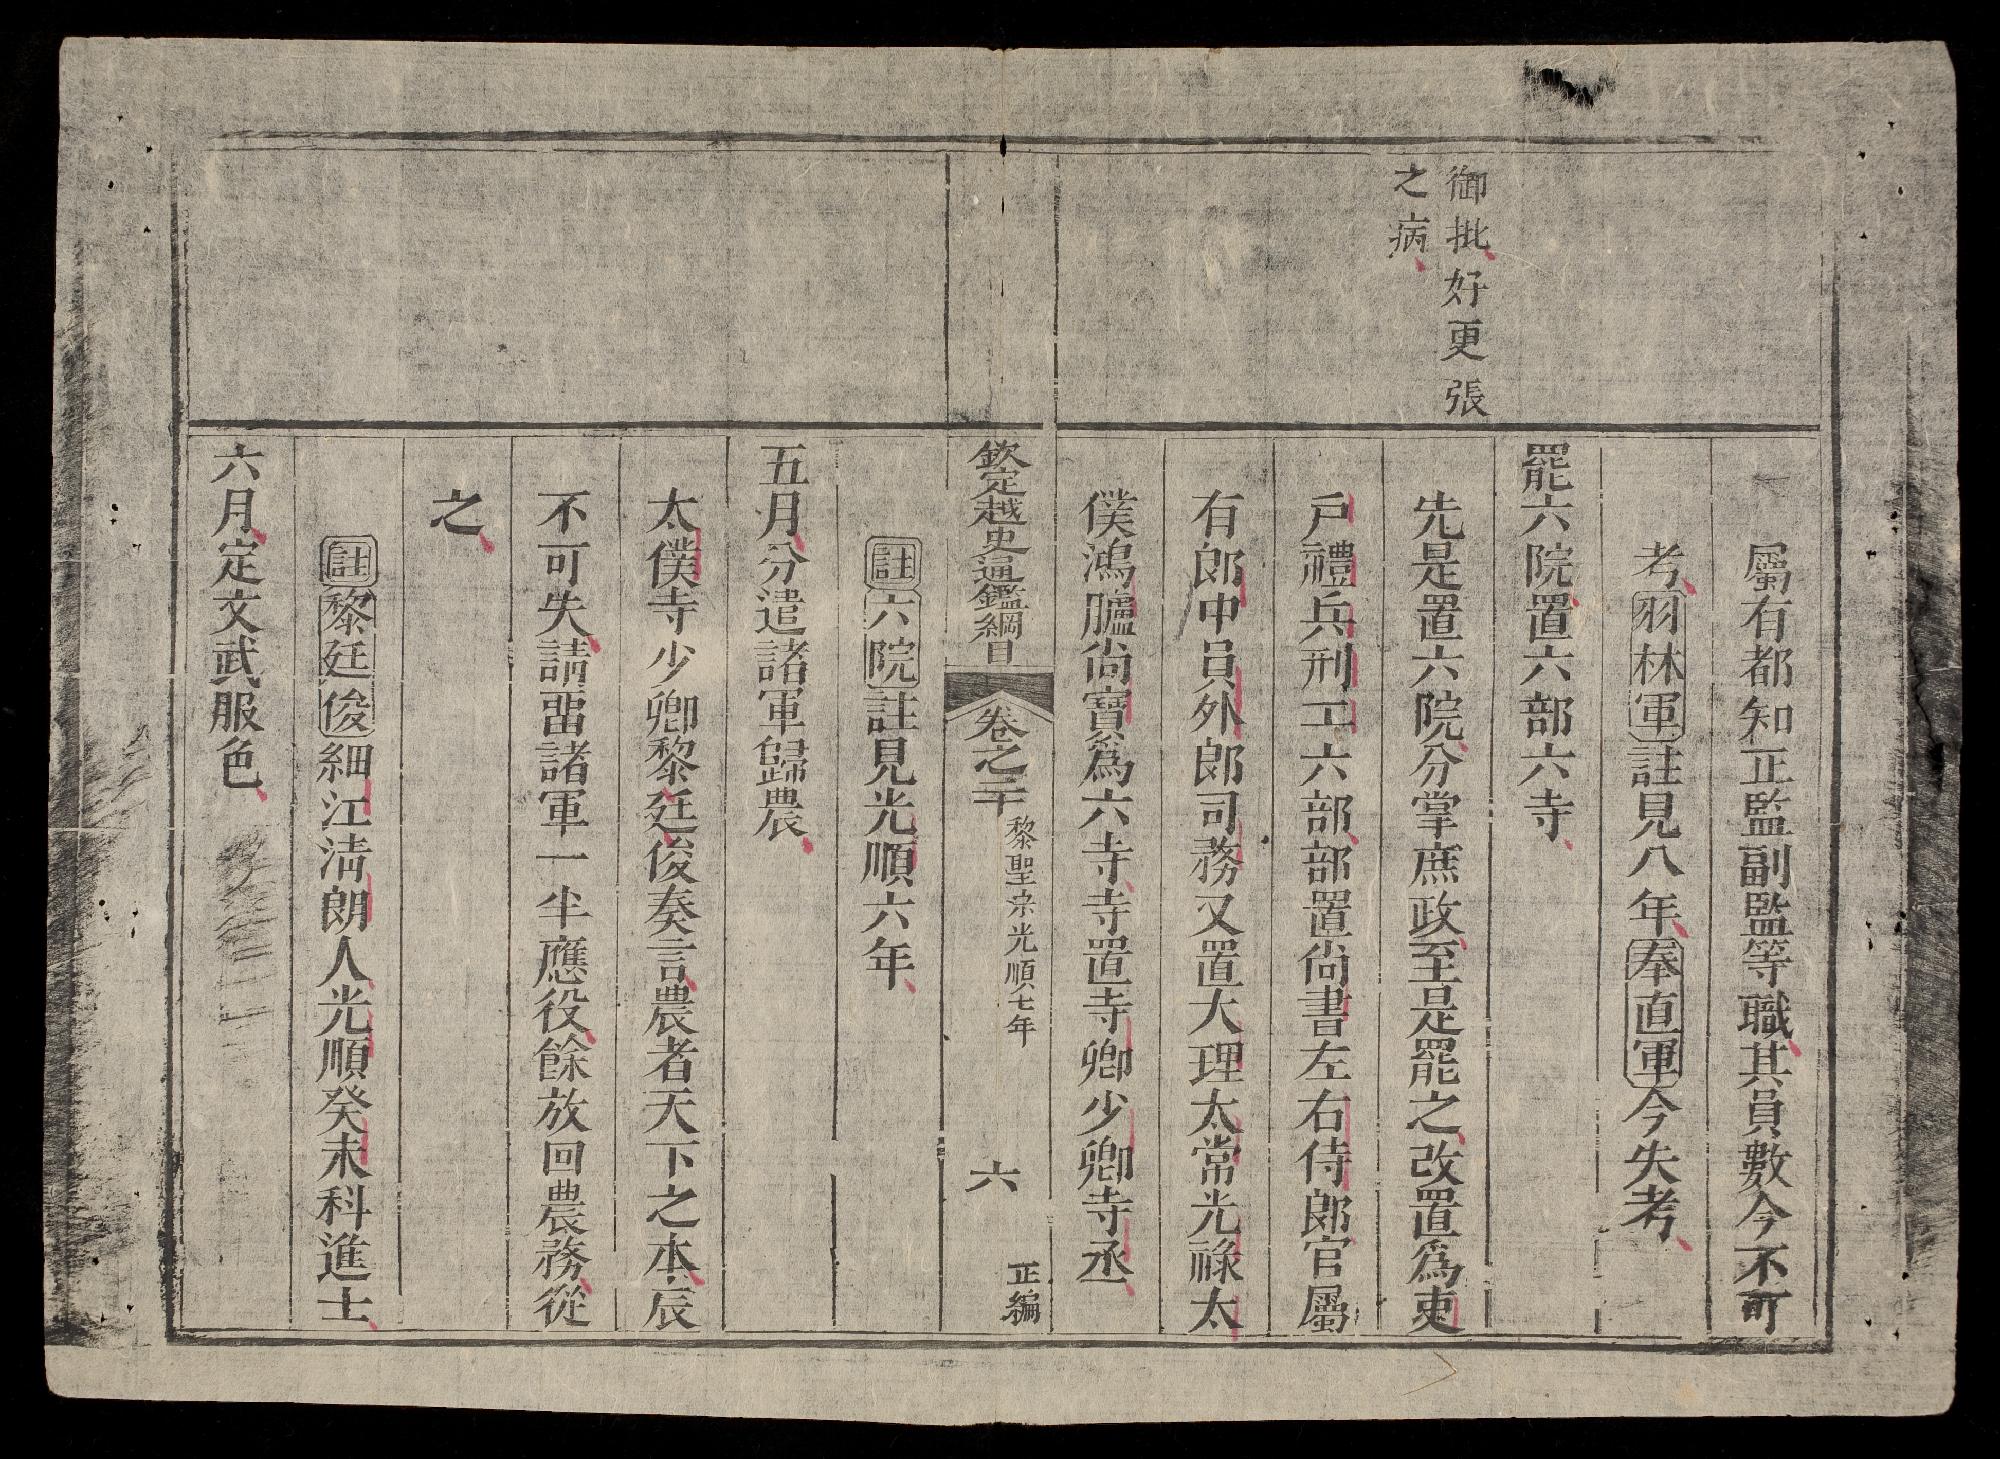 御批好更張
之病
屬有都知正監副監等職其員數今不可
考羽林軍註見八年奉直軍今失考
罷六院置六部六寺
先是置六院分掌庶政至是罷之改置爲吏
戶禮兵刑工六部部置尚書左右侍郎官屬
有郎中員外郎司務又置大理太常光祿太
僕鴻臚尚寶爲六寺寺置寺卿少卿寺丞
欽定越史通鑑綱目
卷之二十
黎聖宗光順七年
六
正編
註六院註見光順六年
五月分遣諸軍歸農
太僕寺少卿黎廷俊奏言農者天下之本辰
不可失請畱諸軍一半應役餘放回農務從
之
註黎廷俊細江淸朗人光順癸未科進士
六月定文武服色